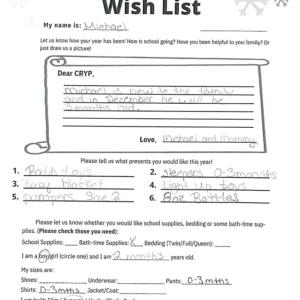 Wish List
My name is: Michael
Let us know how your year has been! How is school going? Have you been helpful to your family? Or
just draw us a picture!
Dear CRYP,
Michael is new to the family
and in December he will be
3 months old.
Love, Michael and Mommy
Please tell us what presents you would like this year!
1. Bath toys
2. sleepers 0-3months
3. Boy blanket
4. Light up toys
5. pampers Size 2
6. 8oz Bottles
Please let us know whether you like school supplies, bedding or some bath-time sup-
plies. (Please check those you need):
School Supplies: Bath-time Supplies: X Bedding (Twin/Full/Queen):
I am a boy/girl (circle one) and I am 2 months years old.
My sizes are:
Shoes: Underwear: Pants: 0-3mths
Shirts: 0-3mths Jacket/Coat: